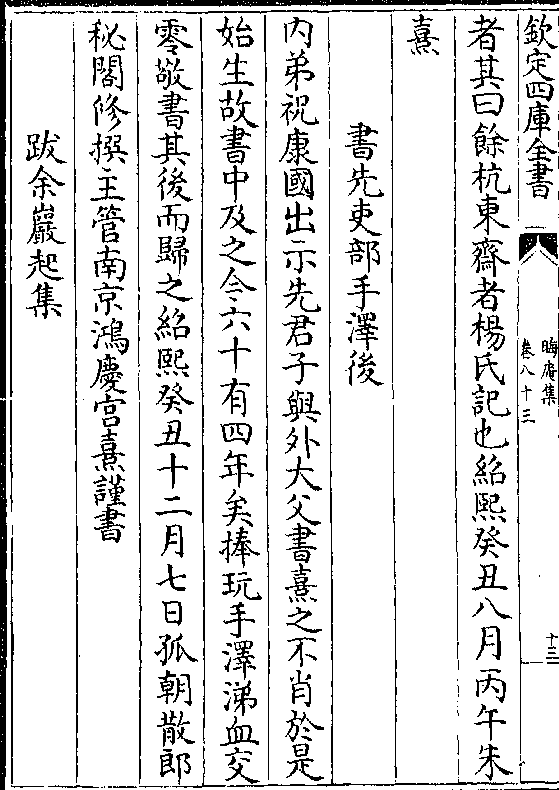 欽定四庫全書
晦庵集
卷八十三
十三
者其曰餘杭東齋者楊氏記也紹熙癸丑八月丙午朱
熹
書先吏部手澤後
内弟祝康國出示先君子與外大父書熹之不肖於是
始生故書中及之今六十有四年矣捧玩手澤涕血交
零敬書其後而歸之紹熙癸丑十二月七日孤朝散郎
秘閣修撰主管南京鴻慶宫熹謹書
跋余巖起集